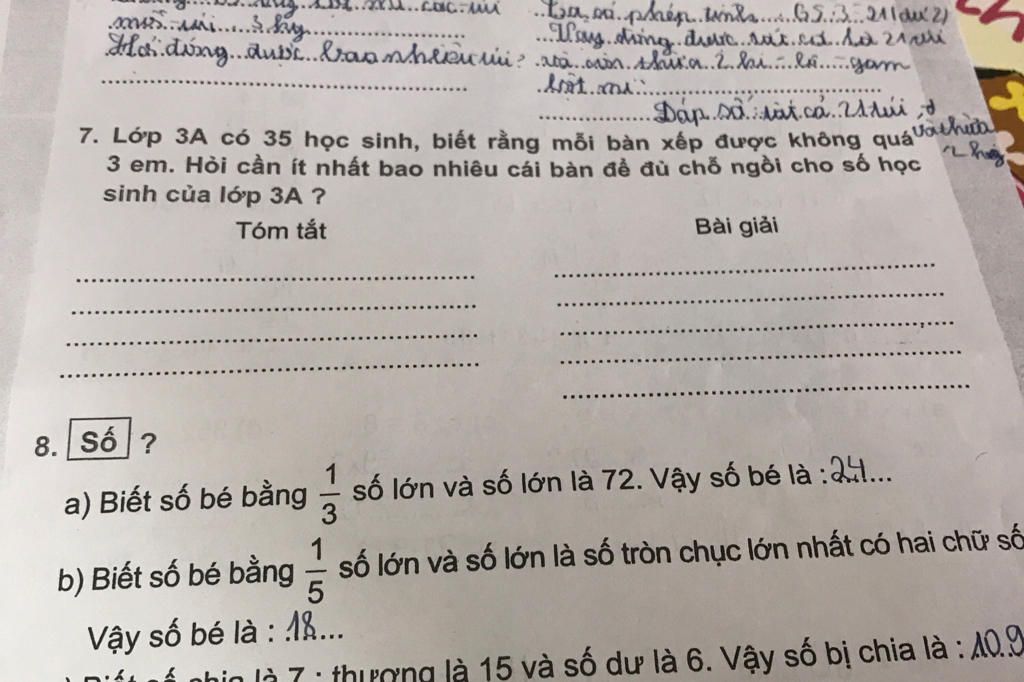 mỗi túi 3 kg
Ta có phép tính: 65:3=21(dư 2)
Hỏi đựng được bao nhiêu túi?
Vậy đựng được tất cả là 21 túi
và còn thừa 2 ki - lô - gam
bột mì
Đáp số: tất cả 21 túi, và thừa 2 kg
7. Lớp 3A có 35 học sinh, biết rằng mỗi bàn xếp được không quá
3 em. Hỏi cần ít nhất bao nhiêu cái bàn để đủ chỗ ngồi cho số học
sinh của lớp 3A ?
Tóm tắt
Bài giải
8. Số ?
a) Biết số bé bằng 1/3 số lớn và số lớn là 72. Vậy số bé là : 24...
b) Biết số bé bằng 1/5 số lớn và số lớn là số tròn chục lớn nhất có hai chữ số
Vậy số bé là : .18...
số chia là 7 ; thương là 15 và số dư là 6. Vậy số bị chia là : 10.9